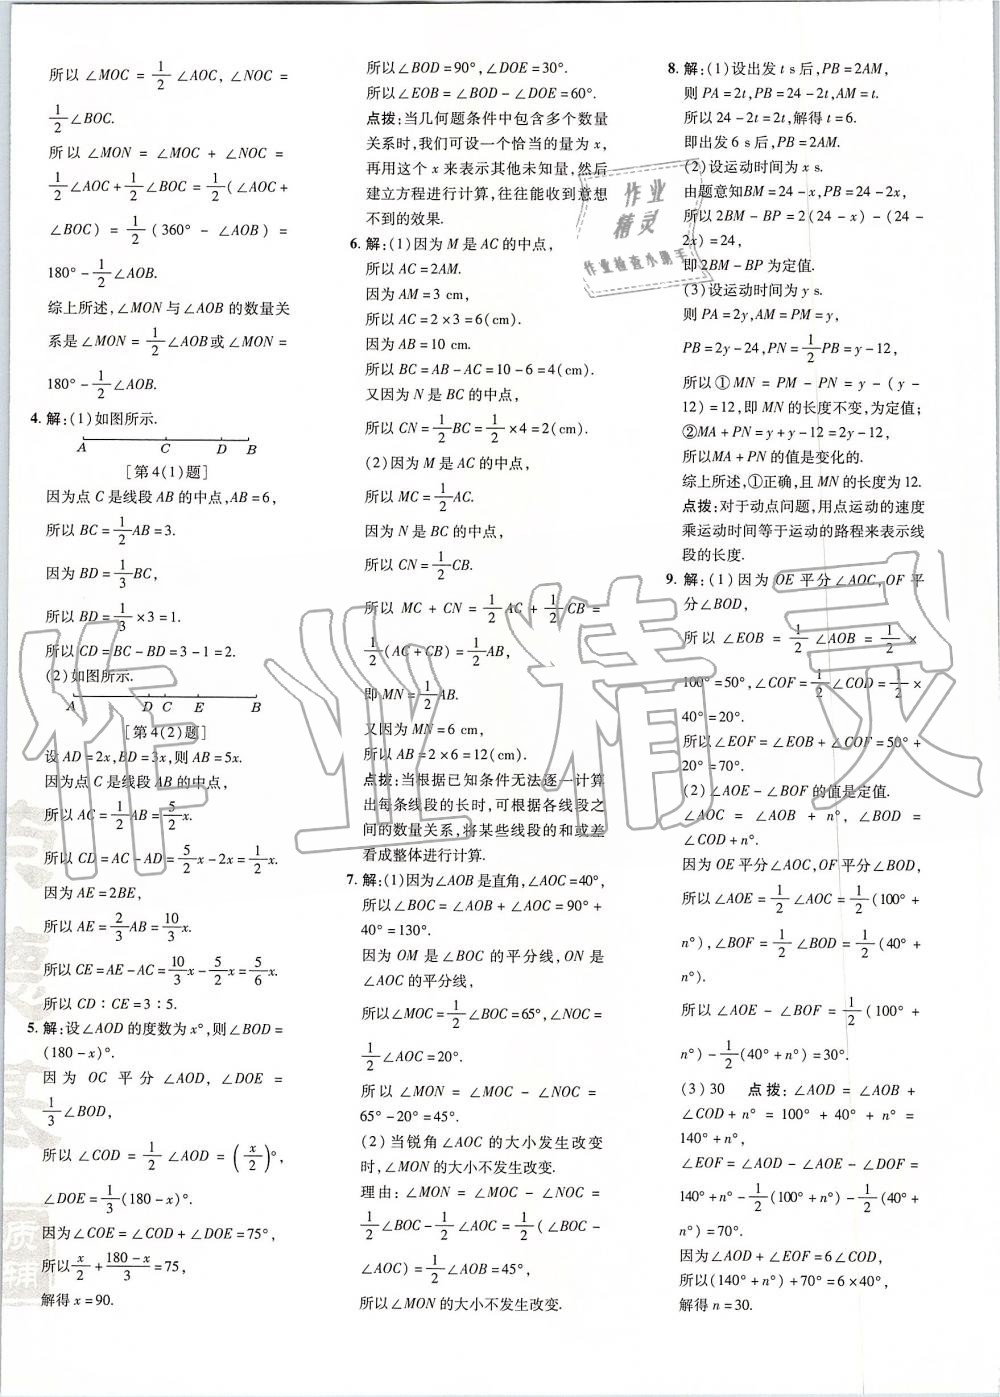 所以∠MOC = 1/2 ∠AOC, ∠NOC =
1/2 ∠BOC.
所以∠MON = ∠MOC + ∠NOC =
1/2 ∠AOC + 1/2 ∠BOC = 1/2 (∠AOC +
∠BOC) = 1/2 (360° - ∠AOB) =
180° - 1/2 ∠AOB.
综上所述,∠MON 与∠AOB 的数量关
系是∠MON = 1/2 ∠AOB 或∠MON =
180° - 1/2 ∠AOB.
4. 解:(1)如图所示.
A C D B
[第4(1)题]
因为点 C 是线段 AB 的中点,AB = 6,
所以 BC = 1/2 AB = 3.
因为 BD = 1/3 BC,
所以 BD = 1/3 × 3 = 1.
所以 CD = BC - BD = 3 - 1 = 2.
(2)如图所示.
A D C E B
[第4(2)题]
设 AD = 2x,BD = 3x,则 AB = 5x.
因为点 C 是线段 AB 的中点,
所以 AC = 1/2 AB = 5/2 x.
所以 CD = AC - AD = 5/2 x - 2x = 1/2 x.
因为 AE = 2BE,
所以 AE = 2/3 AB = 10/3 x.
所以 CE = AE - AC = 10/3 x - 5/2 x = 5/6 x.
所以 CD : CE = 3 : 5.
5. 解:设∠AOD 的度数为 x°,则∠BOD =
(180 - x)°.
因为 OC 平分∠AOD,∠DOE =
1/3 ∠BOD,
所以∠COD = 1/2 ∠AOD = (x/2)°,
∠DOE = 1/3 (180 - x)°.
因为∠COE = ∠COD + ∠DOE = 75°,
所以 x/2 + (180 - x)/3 = 75,
解得 x = 90.
所以∠BOD = 90°,∠DOE = 30°.
所以∠EOB = ∠BOD - ∠DOE = 60°.
点拨:当几何题条件中包含多个数量
关系时,我们可设一个恰当的量为 x,
再用这个 x 来表示其他未知量,然后
建立方程进行计算,往往能收到意想
不到的效果.
6. 解:(1)因为 M 是 AC 的中点,
所以 AC = 2AM.
因为 AM = 3 cm,
所以 AC = 2 × 3 = 6(cm).
因为 AB = 10 cm.
所以 BC = AB - AC = 10 - 6 = 4(cm).
又因为 N 是 BC 的中点,
所以 CN = 1/2 BC = 1/2 × 4 = 2(cm).
(2)因为 M 是 AC 的中点,
所以 MC = 1/2 AC.
因为 N 是 BC 的中点,
所以 CN = 1/2 CB.
所以 MC + CN = 1/2 AC + 1/2 CB =
1/2 (AC + CB) = 1/2 AB,
即 MN = 1/2 AB.
又因为 MN = 6 cm,
所以 AB = 2 × 6 = 12(cm).
点拨:当根据已知条件无法逐一计算
出每条线段的长时,可根据各线段之
间的数量关系,将某些线段的和或差
看成整体进行计算.
7. 解:(1)因为∠AOB 是直角,∠AOC = 40°,
所以∠BOC = ∠AOB + ∠AOC = 90° +
40° = 130°.
因为 OM 是∠BOC 的平分线,ON 是
∠AOC 的平分线,
所以∠MOC = 1/2 ∠BOC = 65°,∠NOC =
1/2 ∠AOC = 20°.
所以∠MON = ∠MOC - ∠NOC =
65° - 20° = 45°.
(2)当锐角∠AOC 的大小发生改变
时,∠MON 的大小不发生改变.
理由:∠MON = ∠MOC - ∠NOC =
1/2 ∠BOC - 1/2 ∠AOC = 1/2 (∠BOC -
∠AOC) = 1/2 ∠AOB = 45°,
所以∠MON 的大小不发生改变.
8. 解:(1)设出发 t s 后,PB = 2AM,
则 PA = 2t,PB = 24 - 2t,AM = t.
所以 24 - 2t = 2t,解得 t = 6.
即出发 6 s 后,PB = 2AM.
(2)设运动时间为 x s.
由题意知BM = 24 - x,PB = 24 - 2x,
所以 2BM - BP = 2(24 - x) - (24 -
2x) = 24,
即 2BM - BP 为定值.
(3)设运动时间为 y s.
则 PA = 2y,AM = PM = y,
PB = 2y - 24,PN = 1/2 PB = y - 12,
所以① MN = PM - PN = y - (y -
12) = 12,即 MN 的长度不变,为定值;
②MA + PN = y + y - 12 = 2y - 12,
所以MA + PN 的值是变化的.
综上所述,①正确,且 MN 的长度为 12.
点拨:对于动点问题,用点运动的速度
乘运动时间等于运动的路程来表示线
段的长度.
9. 解:(1)因为 OE 平分∠AOC,OF 平
分∠BOD,
所以∠EOB = 1/2 ∠AOB = 1/2 ×
100° = 50°,∠COF = 1/2 ∠COD = 1/2 ×
40° = 20°.
所以∠EOF = ∠EOB + ∠COF = 50° +
20° = 70°.
(2)∠AOE - ∠BOF 的值是定值.
∠AOC = ∠AOB + n°,∠BOD =
∠COD + n°.
因为 OE平分∠AOC,OF平分∠BOD,
所以∠AOE = 1/2 ∠AOC = 1/2 (100° +
n°),∠BOF = 1/2 ∠BOD = 1/2 (40° +
n°).
所以∠AOE - ∠BOF = 1/2 (100° +
n°) - 1/2 (40° + n°) = 30°.
(3)30 点拨:∠AOD = ∠AOB +
∠COD + n° = 100° + 40° + n° =
140° + n°,
∠EOF = ∠AOD - ∠AOE - ∠DOF =
140° + n° - 1/2 (100° + n°) - 1/2 (40° +
n°) = 70°.
因为∠AOD + ∠EOF = 6∠COD,
所以(140° + n°) + 70° = 6 × 40°,
解得 n = 30.
作业
精灵
作业检查小助手
作业精灵
质
辅